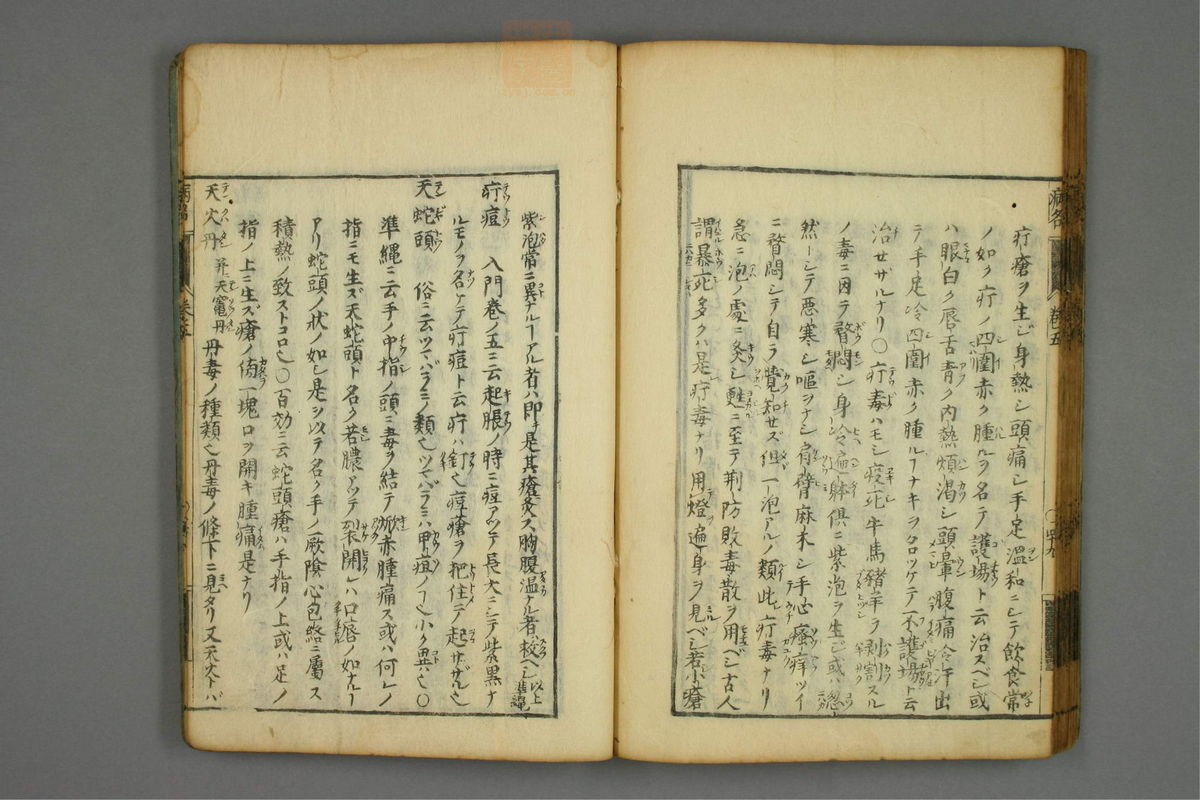 疔瘡ヲ生ジ身熱シ頭痛シ手足温和ニシテ飲食常
ノ如ク疔ノ四圍赤ク腫ルヲ名テ護場ト云治スベシ或
ハ眼白ク唇舌青ク内熱煩渇シ頭暈腹痛冷汗出
テ手足冷四圍赤ク腫ルヿナキヲ名ケテ不護場ト云
治セザルナリ〇疔毒ハモシ疫死牛馬猪羊ヲ剥割スル
ノ毒ニ因テ瞀悶シ身冷遍躰倶ニ紫泡ヲ生ジ或ハ忽
然トシテ悪寒シ嘔ヲナシ肩臂麻木シ手心瘙痒ツイ
ニ瞀悶シテ自ラ覚知セズ但一泡アルノ類此疔毒ナリ
急ニ泡ノ處ニ灸シ甦ニ至テ荆防敗毒散ヲ用ベシ古人
謂暴死多クハ是疔毒ナリ用燈遍身ヲ見ベシ若小瘡
紫泡常ニ異ナルヿアル者ハ即チ是其瘡灸ス胸腹温ナル者ハ救ベシ以上準縄
疔痘 入門巻ノ五ニ云起脹ノ時ニ痘アツテ長大ニシテ紫黒ナ
ルモノヲ名ケテ疔痘ト云疔ハ釘也痘瘡ヲ把住テ起セザル也
天蛇頭 俗ニ云ツマバラミノ類也ツマバラミハ甲疽ノ也小ク異ハ也〇
準縄ニ云手ノ中指ノ頭ニ毒ヲ結テ焮赤腫痛ス或ハ何レノ
指ニモ生ズ天蛇頭ト名ク若膿アツテ裂開レハ口唇ノ如ナルヿ
アリ蛇頭ノ状ノ如シ是ヲ以テ名ク手ノ厥陰心包絡ニ屬ス
積熱ノ致ストコロ也〇百効ニ云蛇頭瘡ハ手指ノ上或ハ足ノ
指ノ上ニ生ズ瘡ノ傍一塊口ヲ開キ腫痛是ナリ
天火丹 并ニ天竈丹 丹毒ノ種類也丹毒ノ條下ニ見タリ又天火トハ
病名
巻五